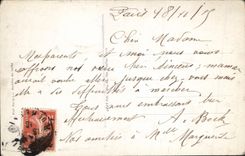 Paris 18/12/15
Chère Madame
Mes parents et moi nous vous
offrons nos vœux bien sincères, maman
aurait voulu aller jusque chez vous mais
elle a des difficultés à marcher
Nous vous embrassons bien
affectueusement A. Bock
Nos amitiés à Mlle Marguerite